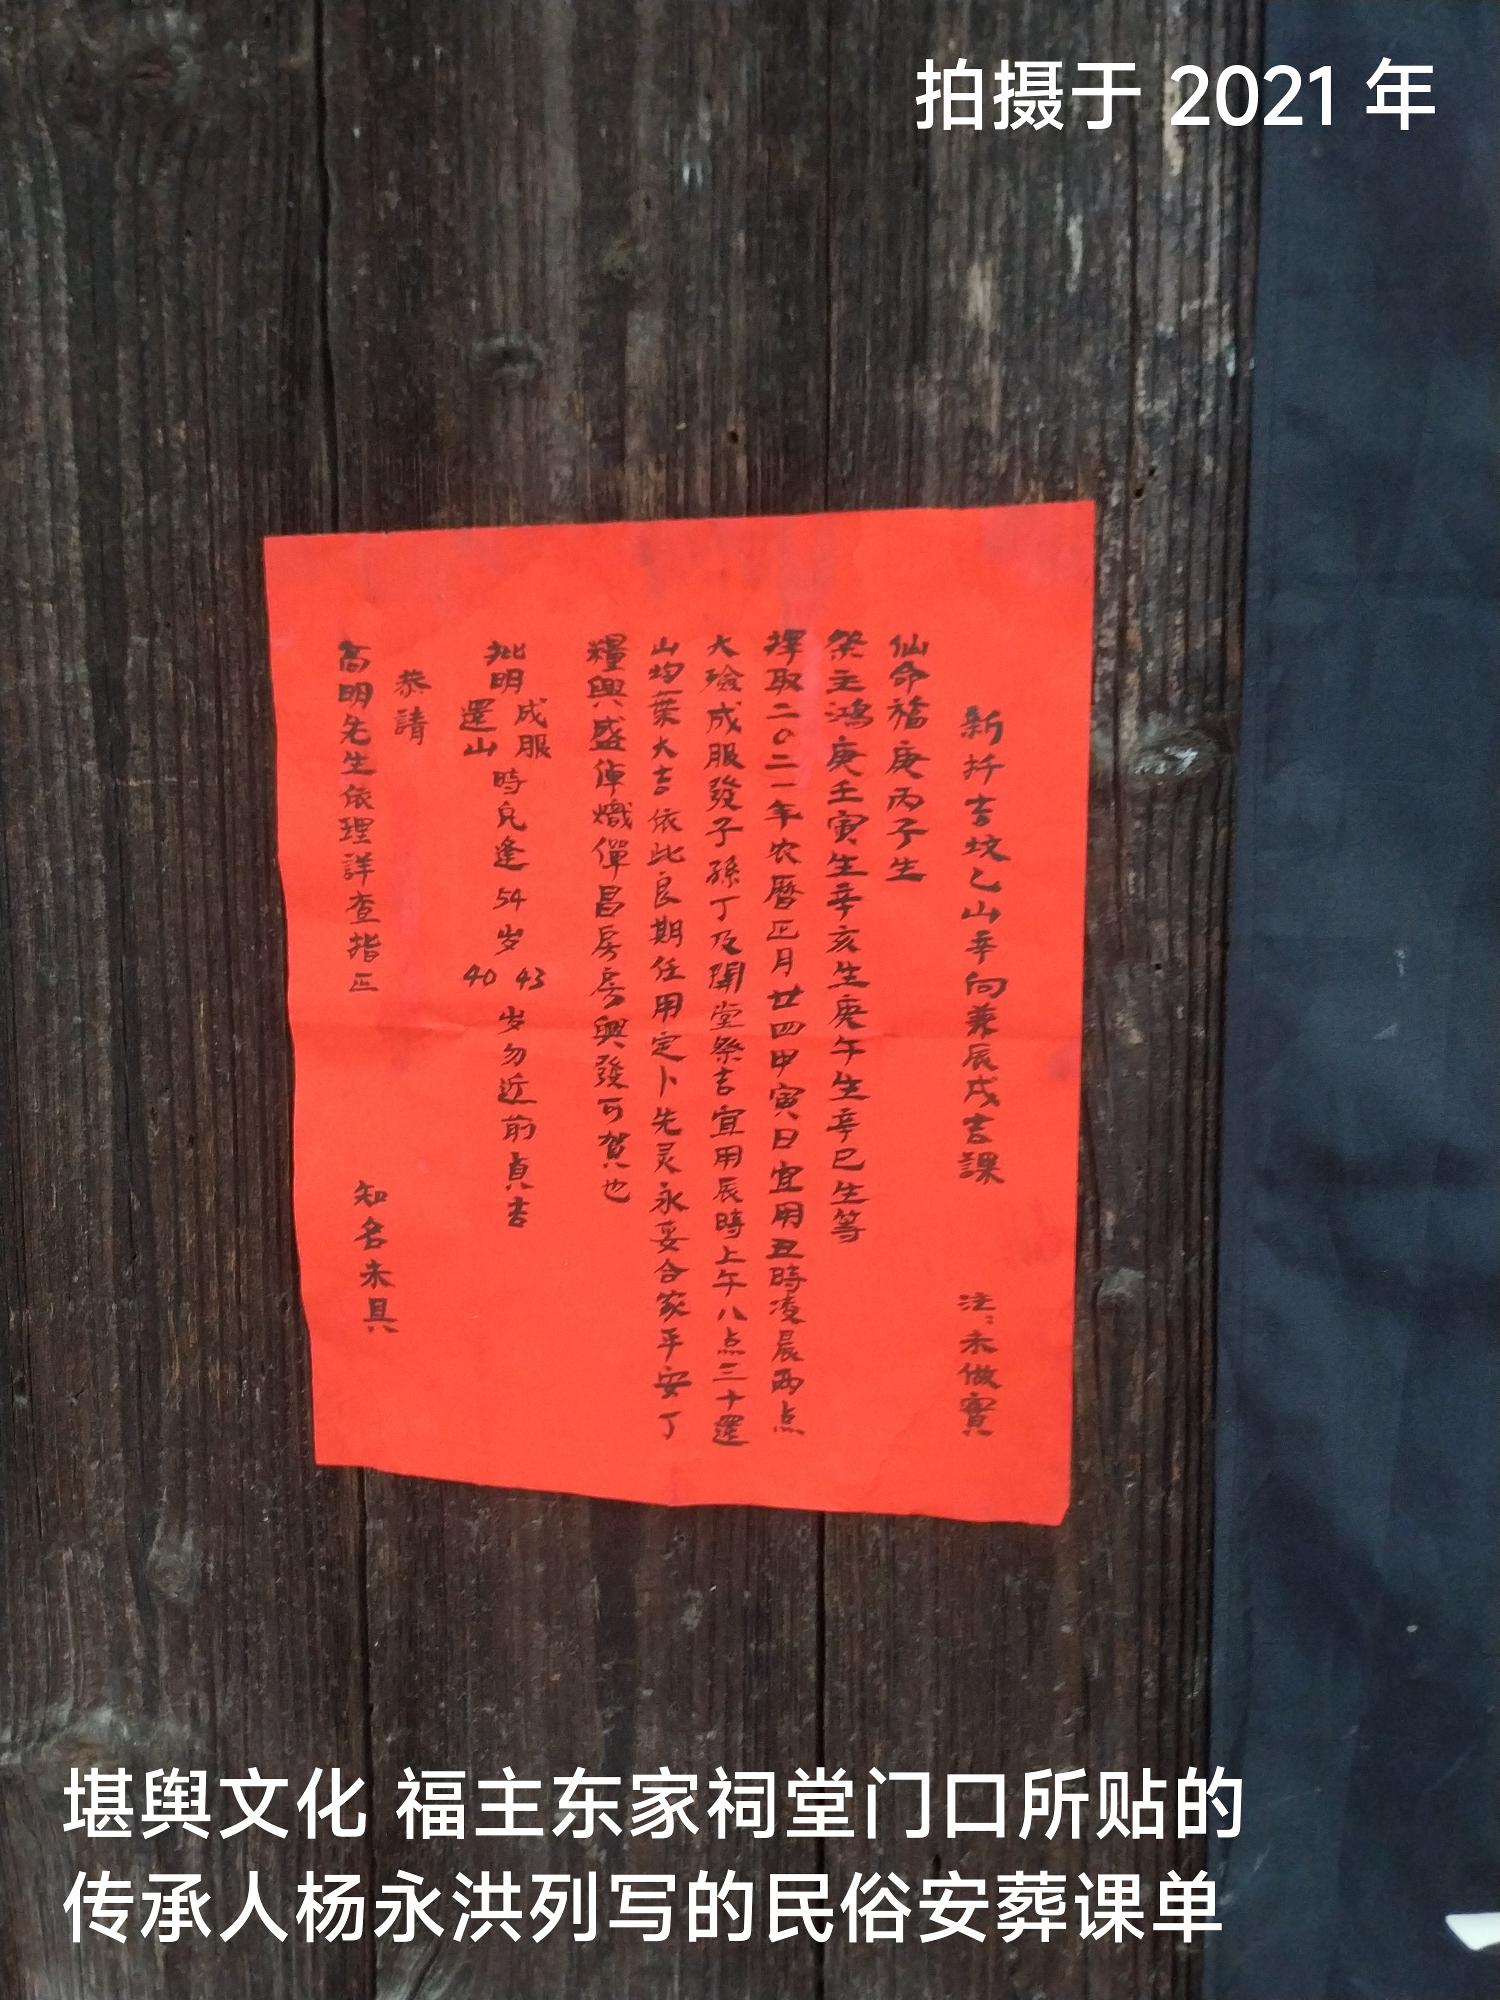 拍摄于 2021 年
新扦吉坟乙山辛向兼辰戌吉課 注:未做實
仙命福庚丙子生
祭主鴻庚壬寅生辛亥生庚午生辛巳生等
擇取二〇二一年农曆正月廿四甲寅日宜用丑時凌晨两点
大殮成服發子孫丁及開堂祭吉宜用辰時上午八点三十還
山均葉大吉依此良期任用定卜先灵永妥合家平安丁
糧興盛俥熾僤昌房房興發可賀也
批明 成服 還山 時凢逢 54 岁 43 40 岁勿近前貞吉
恭請
高明先生依理詳查指正 知名未具
堪舆文化 福主东家祠堂门口所贴的
传承人杨永洪列写的民俗安葬课单